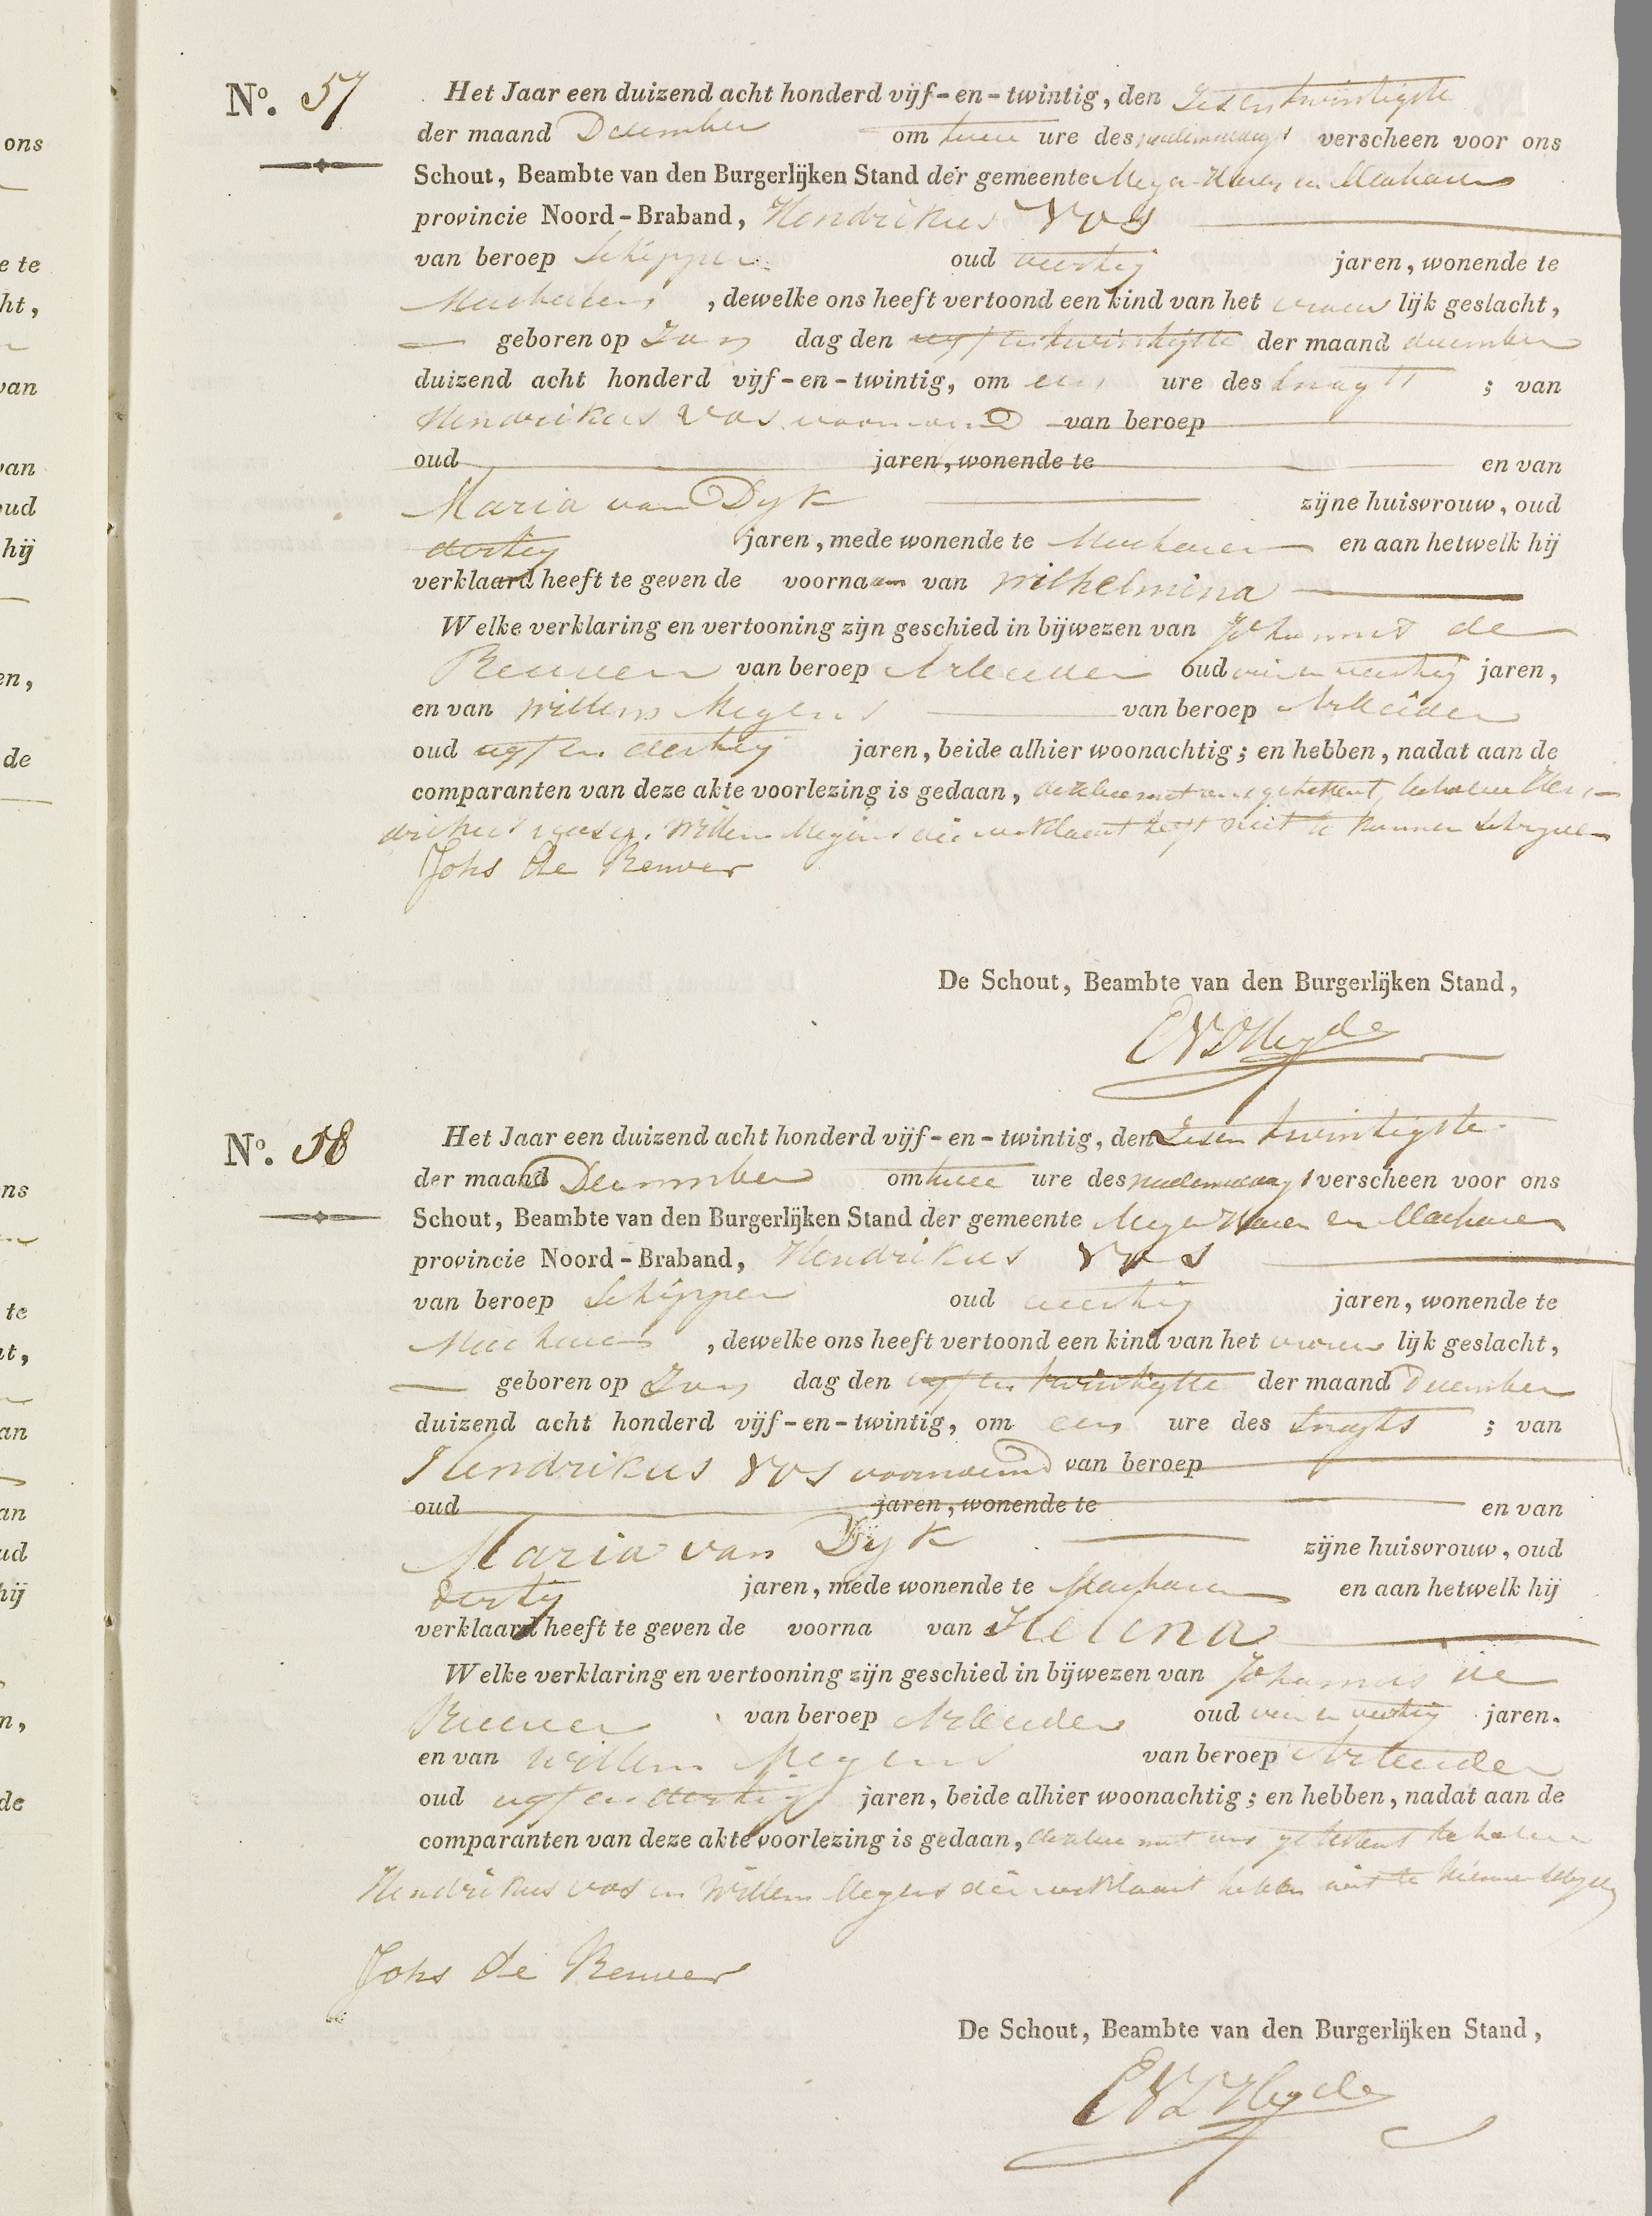 ons
e te
ht,
van
van
oud
hij
en,
de
No. 57
Het Jaar een duizend acht honderd vijf-en-twintig, den Zesentwintigste
der maand December om twee ure des nademiddags verscheen voor ons
Schout, Beambte van den Burgerlijken Stand der gemeente Megen Haren en Macharen
provincie Noord-Braband, Hendrikus Vos
van beroep Schipper oud veertig jaren, wonende te
Macharen, dewelke ons heeft vertoond een kind van het vrouwlijk geslacht,
geboren op Zon dag den vyfentwintigste der maand december
duizend acht honderd vijf-en-twintig, om een ure des snagts ; van
Hendrikus Vos voornoemd van beroep
oud jaren, wonende te en van
Maria van Dyk zijne huisvrouw, oud
dertig jaren, mede wonende te Macharen en aan hetwelk hij
verklaard heeft te geven de voornaam van Wilhelmina
Welke verklaring en vertooning zijn geschied in bijwezen van Johannis de
Reuver van beroep Arbeider oud en veertig jaren,
en van Willem Megens van beroep Arbeider
oud vyf en dertig jaren, beide alhier woonachtig; en hebben, nadat aan de
comparanten van deze akte voorlezing is gedaan, dezelve met ons getekent, behalve Hen
drikus vos en Willem Megens die verklaart heeft niet te kunnen schryven
Johs de Reuver
De Schout, Beambte van den Burgerlijken Stand,
EVDHeyde
ns
te
ht,
an
an
ud
hij
n,
de
No. 58
Het Jaar een duizend acht honderd vijf-en-twintig, den Zesen twintigste
der maand December om twee ure des nademiddags verscheen voor ons
Schout, Beambte van den Burgerlijken Stand der gemeente Megen Haren en Macharen
provincie Noord-Braband, Hendrikus Vos
van beroep Schipper oud veertig jaren, wonende te
Macharen, dewelke ons heeft vertoond een kind van het vrouwlijk geslacht,
geboren op Zon dag den vyfentwintigste der maand December
duizend acht honderd vijf-en-twintig, om een ure des snagts ; van
Hendrikus Vos voornoemd van beroep
oud jaren, wonende te en van
Maria van Dyk zijne huisvrouw, oud
dertig jaren, mede wonende te Macharen en aan hetwelk hij
verklaard heeft te geven de voorna van Helena
Welke verklaring en vertooning zijn geschied in bijwezen van Johannis de
Reuver van beroep Arbeider oud en veertig jaren.
en van Willem Megens van beroep Arbeider
oud vyf en dertig jaren, beide alhier woonachtig; en hebben, nadat aan de
comparanten van deze akte voorlezing is gedaan, dezelve met ons getekent behalve
Hendrikus vos en Willem Megens die verklaart hebben niet te kunnen schryven
Johs de Reuver
De Schout, Beambte van den Burgerlijken Stand,
EVDHeyde